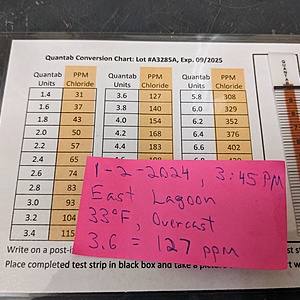 Quantab Conversion Chart: Lot #A3285A, Exp. 09/2025
Quantab Units PPM Chloride Quantab Units PPM Chloride Quantab Units PPM Chloride
1.4 31 3.6 127 5.8 308
1.6 37 3.8 140 6.0 329
1.8 43 4.0 154 6.2 352
2.0 50 4.2 168 6.4 376
2.2 57 4.4 183 6.6 402
2.4 65
2.6 74
2.8 83
3.0 93
3.2 104
3.4 115
1-2-2024, 3:45 PM
East Lagoon
33°F, Overcast
3.6 = 127 ppm
Write on a post-i
Place completed test strip in black box and take a